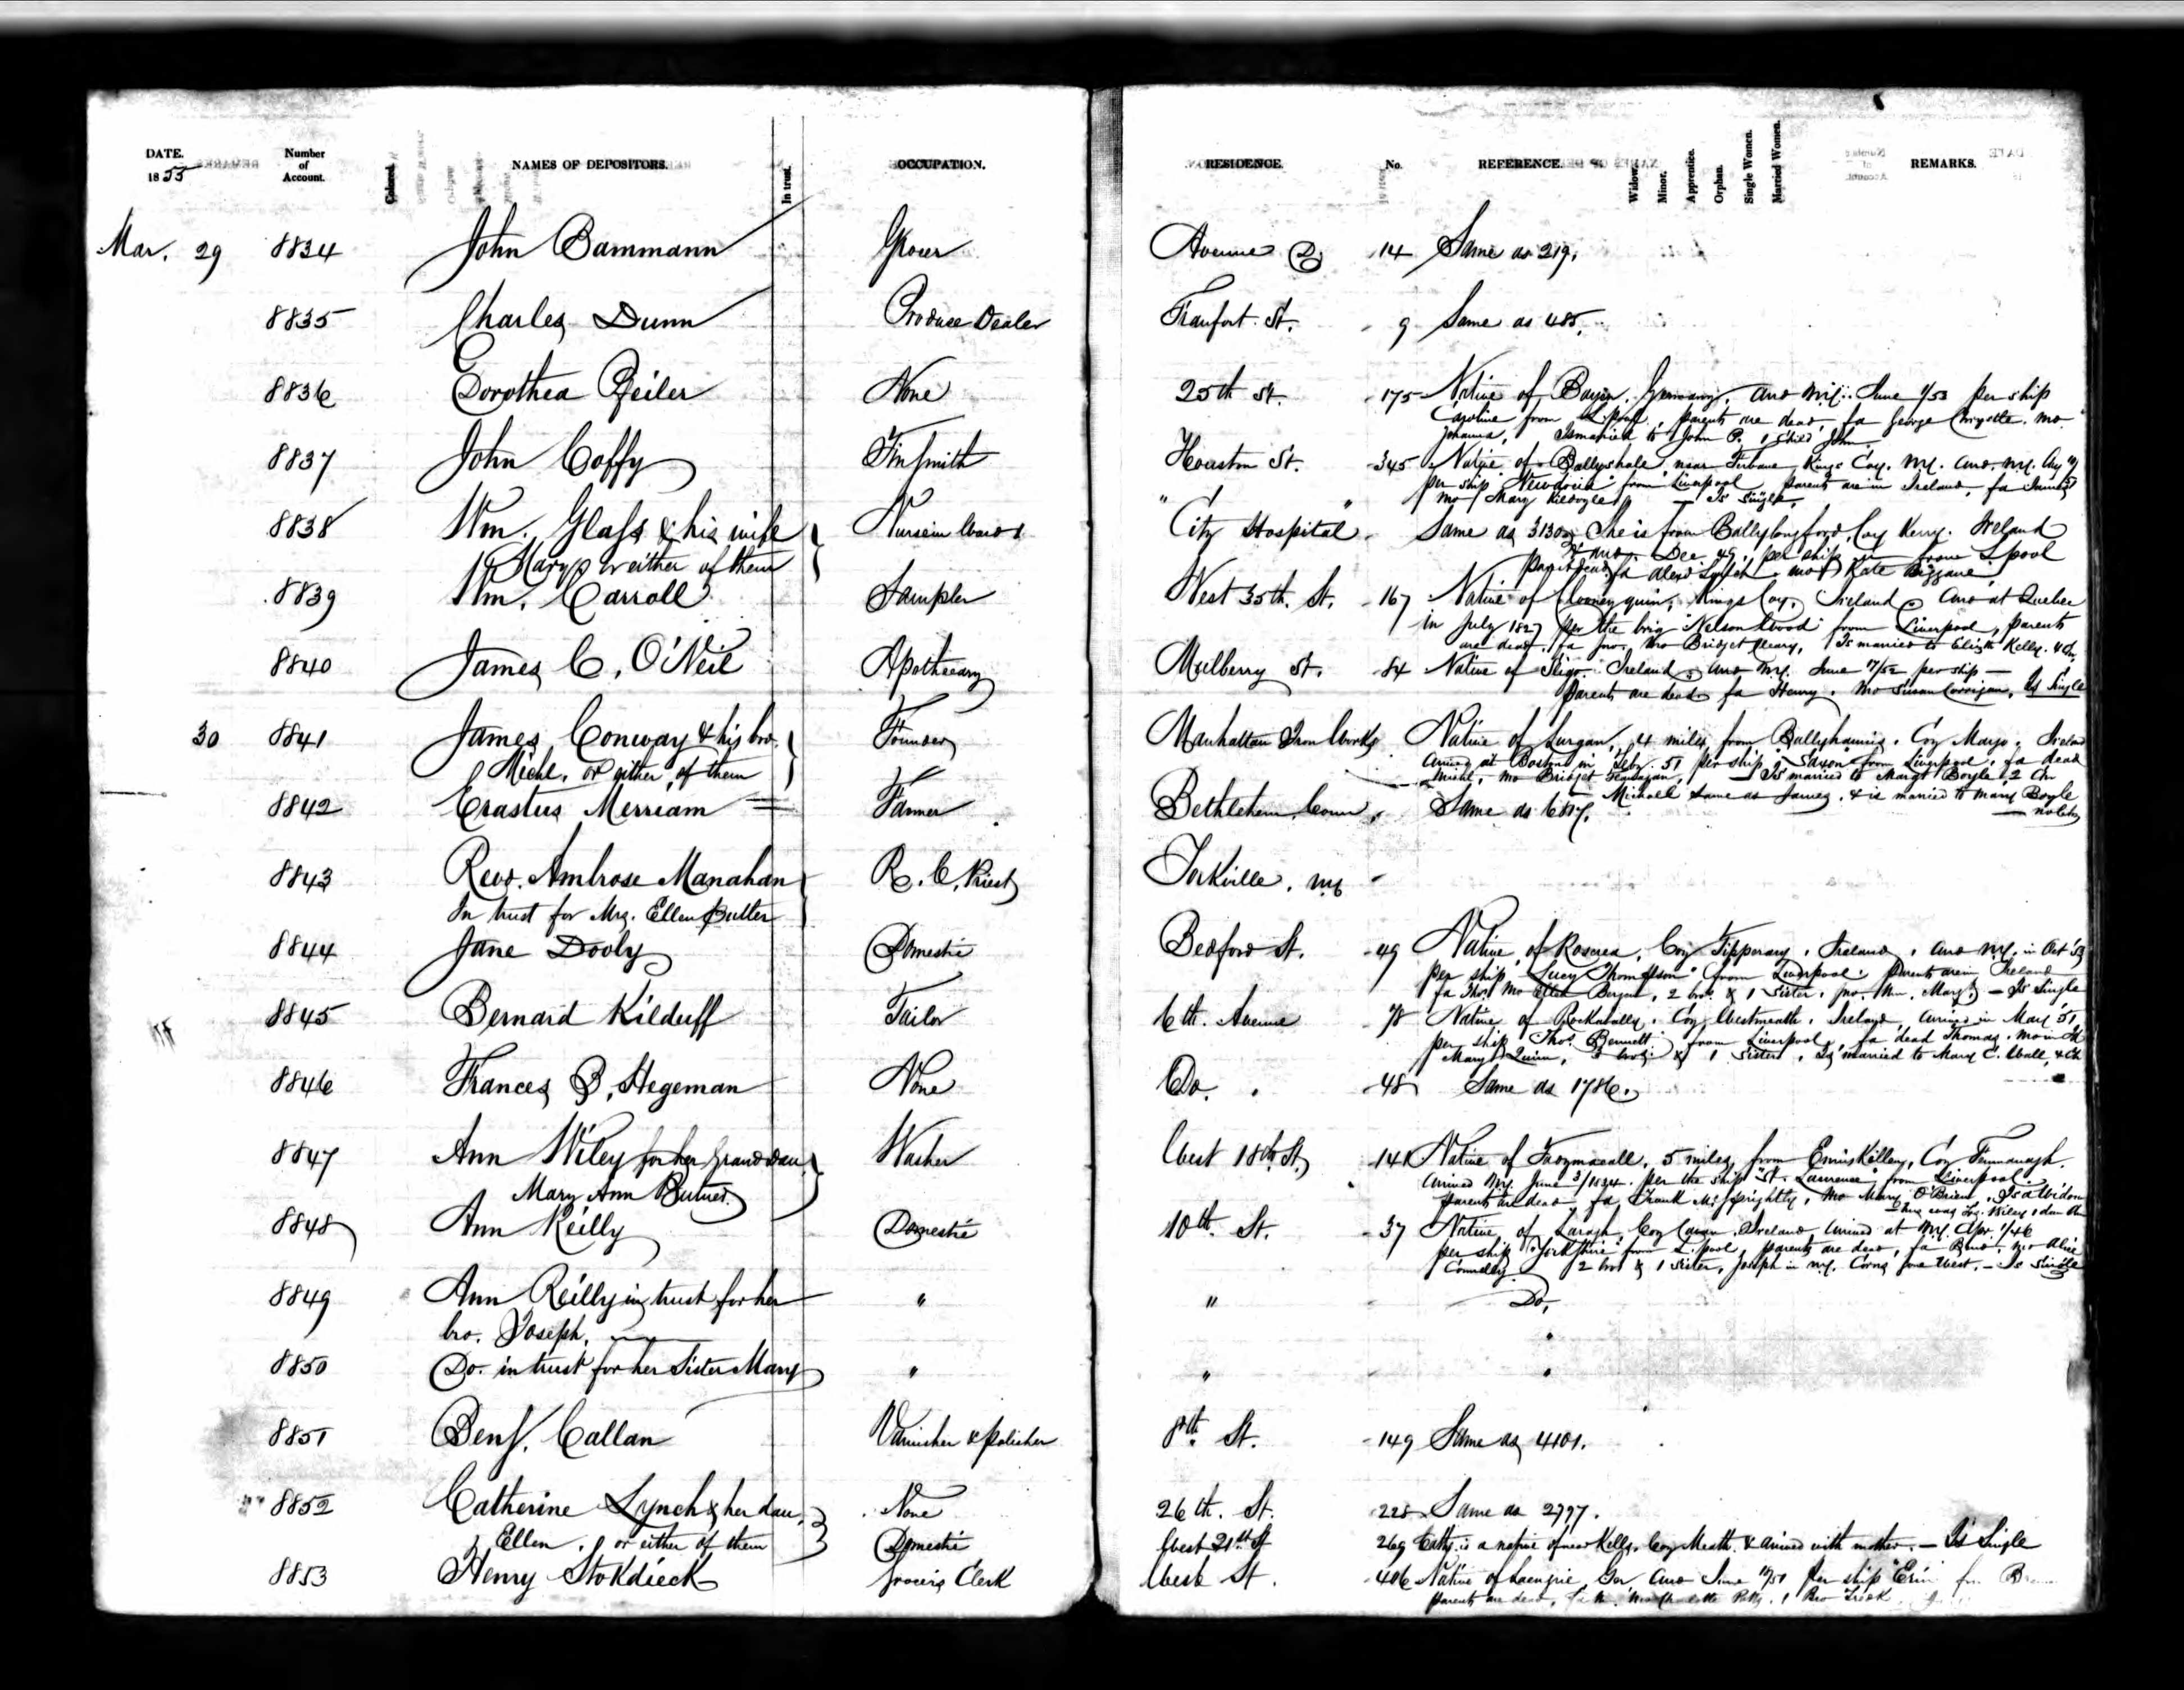 DATE. 1855 Number of Account. Colored. NAMES OF DEPOSITORS. In trust. OCCUPATION. RESIDENCE. No. REFERENCE. Widow. Minor. Apprentice. Orphan. Single Women. Married Women. REMARKS.
Mar. 29 8834 John Bammann Grocer Avenue D. 14 Same as 219.
8835 Charles Dunn Produce Dealer Franfort St. 9 Same as 485.
8836 Dorothea Peiler None 25th St. 175 Native of Germany. arrd N.Y. June /53 per ship
Caroline from L.pool. parents are dead, fa George mo
Johanna, Is married to John P. 1 child John.
8837 John Coffy Tinsmith Houston St. 345 Native of Ballyshale, near Ferbane Kings Coy. arrd. N.Y. Aug
per ship from Liverpool parents are in Ireland, fa James
mo Mary — Is Single.
8838 Wm. Glass & his wife Nurse in Ward 1 "City Hospital" Same as 3130. She is from Ballylongford, Coy Kerry. Ireland
Mary or either of them arrd Dec. 49, per ship — from Lpool
parents dead fa mo Kate
8839 Wm. Carroll Sampler West 35th. St. 167 Native of Clooneyquin, Kings Coy, Ireland arrd at Quebec
in July 1827 per the brig "Nelson Wood" from Liverpool, parents
are dead, fa Jno. mo Bridget Cleary, Is married to Elizth Kelly. 4 Ch.
8840 James C. O'Neil Apothecary Mulberry St. 84 Native of Sligo. Ireland arrd N.Y. June 17/52 per ship —
Parents are dead fa Henry. mo Susan Corrigan, Is Single
30 8841 James Conway & his bro. Founder Manhattan Iron Works Native of Lurgan, 4 miles from Ballyhaunis. Coy Mayo. Ireland
Michl. or either of them Arrived at Boston in Feby. 51 per ship Saxon from Liverpool. fa dead
Michl, mo Bridget Flanagan, — Is married to Margt Boyle 2 Ch
Michael same as James. & is married to Mary Boyle
— no Ch
8842 Erastus Merriam Farmer Bethlehem, Conn. Same as 6817.
8843 Revd. Ambrose Manahan R. C. Priest Yorkville. NY
In trust for Mrs. Ellen Butler
8844 Jane Dooly Domestic Bedford St. 49 Native of Roscrea, Coy Tipperary. Ireland. arrd N.Y. in Oct 53
per ship "Lucy Thompson" from Liverpool. parents are in Ireland
fa Thos. mo Ellen Bergin, 2 bros. & 1 Sister. Jno. Wm. Margt. — Is Single
8845 Bernard Kilduff Tailor 6th. Avenue 78 Native of Rockavally. Coy Westmeath. Ireland, Arrived in May 51
per ship Thos. Bennett from Liverpool, fa dead Thomas. mo in Id
Mary Quinn, bros. & 1 Sister. Is married to Mary C. Wall, 4 Ch
8846 Frances B. Hegeman None Do. 48 Same as 1786.
8847 Ann Wiley for her Grand dau. Washer West 18th St. 141 Native of 5 miles from Enniskillen, Coy Fermanagh.
Mary Ann Arrived N.Y. June 3/1834. per the ship "St. Lawrence" from Liverpool.
parents are dead fa Frank McSprightly, mo Mary O'Brien. Is a Widow
8848 Ann Reilly Domestic 10th. St. 37 Native of Laragh. Coy Cavan. Ireland Arrived at N.Y. Apr. 1/46
per ship "Yorkshire" from L.pool, parents are dead, fa mo Alice
Connolly 2 bros & 1 Sister, Joseph in N.Y. Corns gone West. — Is Single
8849 Ann Reilly in trust for her " " Do.
bro. Joseph.
8850 Do. in trust for her Sister Mary " " "
8851 Benj. Callan Varnisher & polisher 8th. St. 149 Same as 4101.
8852 Catherine Lynch & her dau. None 26th. St. 228 Same as 2797.
Ellen, or either of them Domestic West 21st St 269 is a native of near Kells, Coy Meath. & arrived with mother. — Is Single
8853 Henry Stokdieck Grocer's Clerk West St. 406 Native of Ger arrd June /51 per ship "Erin"
parents are dead, 1 Bro